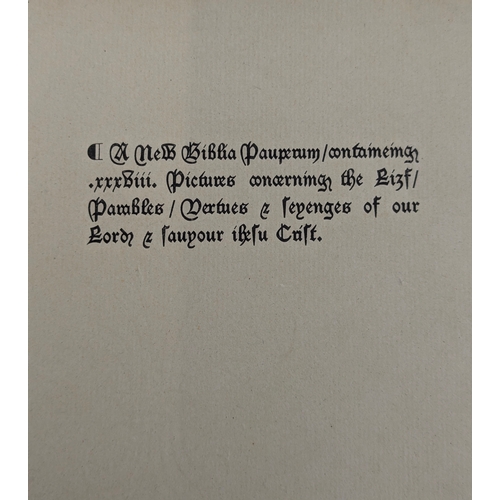 ¶ A New Biblia Pauperum/conteineing
.xxxviii. Pictures concerning the Liyf/
Parables / Vertues & seyenges of our
Lord & sauyour ihesu Crist.